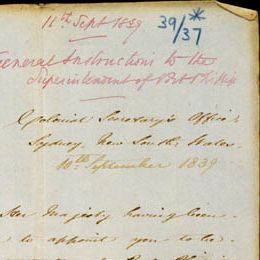 11th Sept 1839
39/37*
General Instructions to the
Superintendent of Port Phillip
Colonial Secretary's Office
Sydney, New South Wales
10th September 1839
Her Majesty having been
to appoint you to be